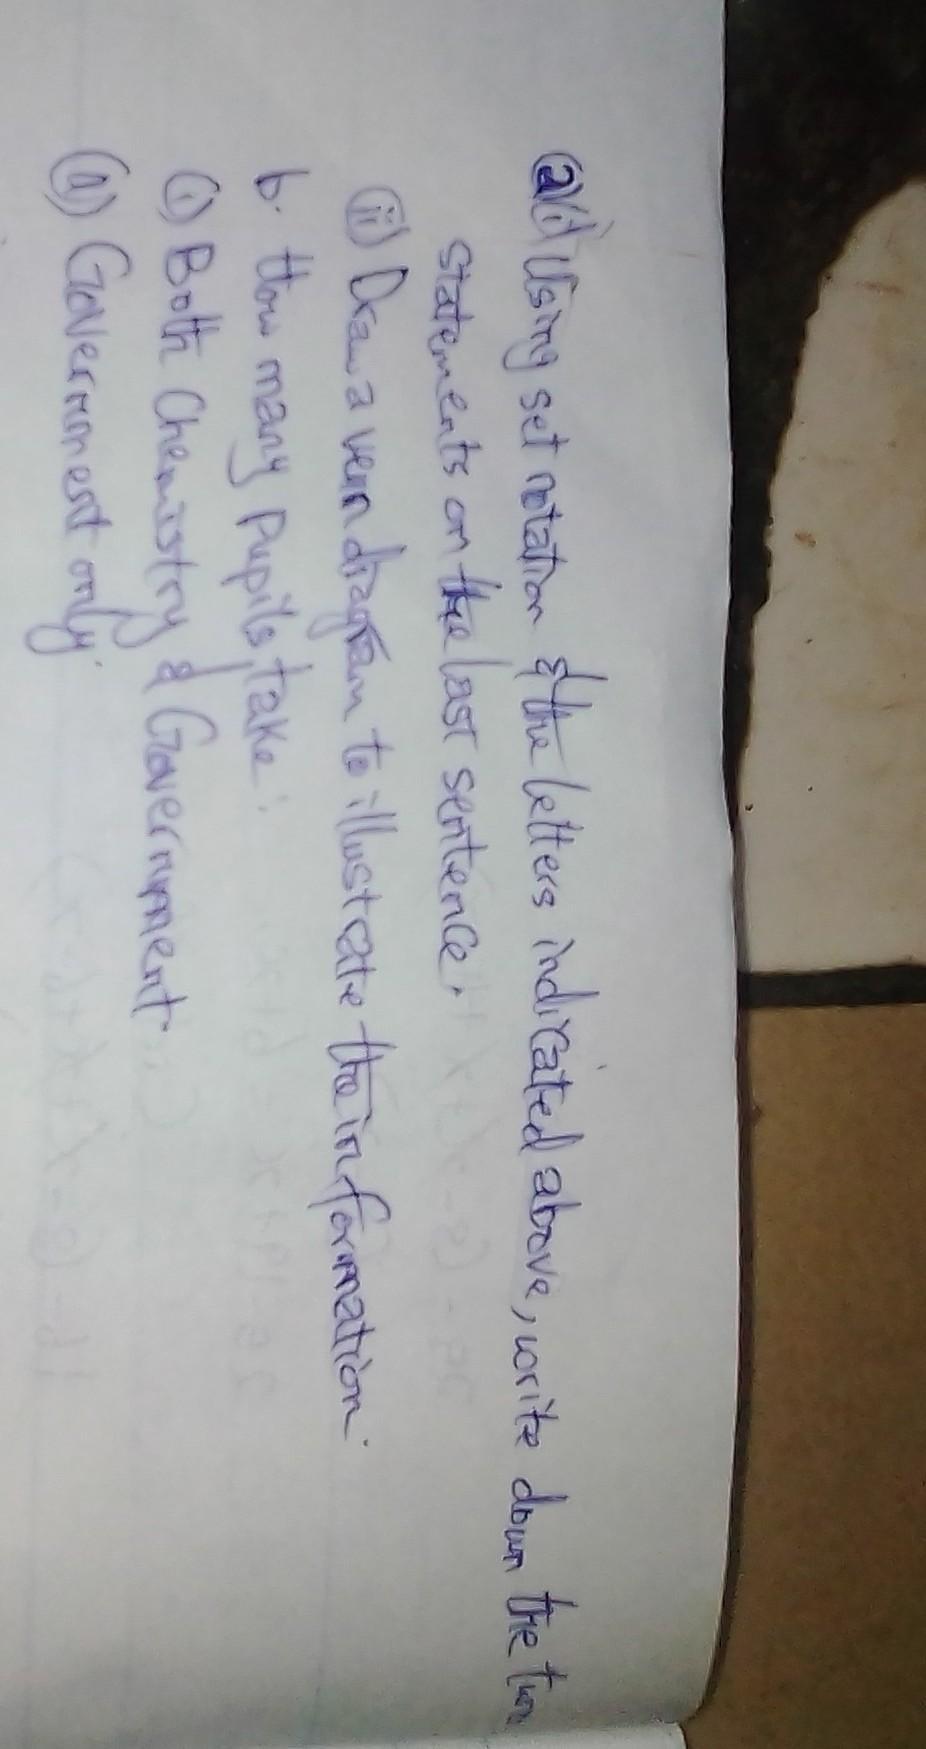 (a)(i) Using set notation & the letters indicated above, write down the two
statements on the last sentence.
(ii) Draw a venn diagram to illustrate the information.
b. How many Pupils take:
(i) Both Chemistry & Government
(ii) Government only.